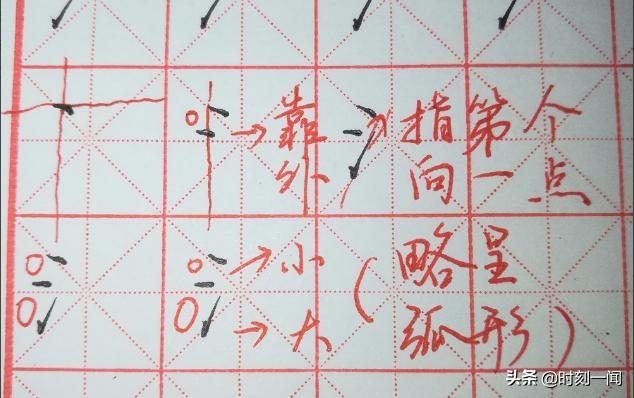 靠外
指向第一个点
小
大
(略呈弧形)
头条 @时刻一闻